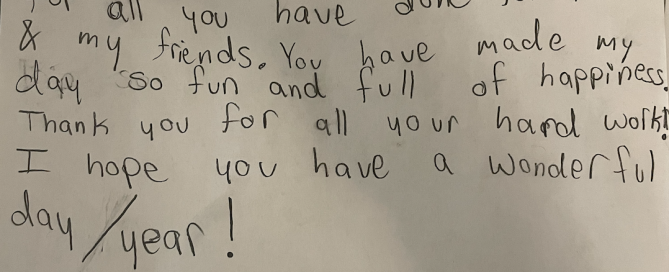 all you have done
& my friends. You have made my
day so fun and full of happiness.
Thank you for all your hard work!
I hope you have a wonderful
day/year!